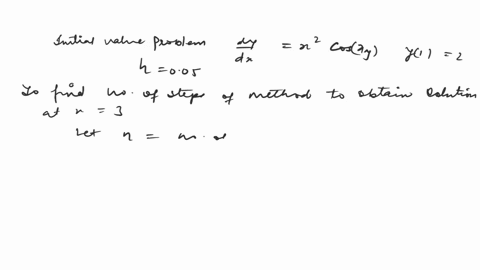 Initial value problem dy/dx = x² Cos(xy) y(1) = 2
h = 0.05
To find no. of steps of method to obtain solution
at x = 3
Let n = no.